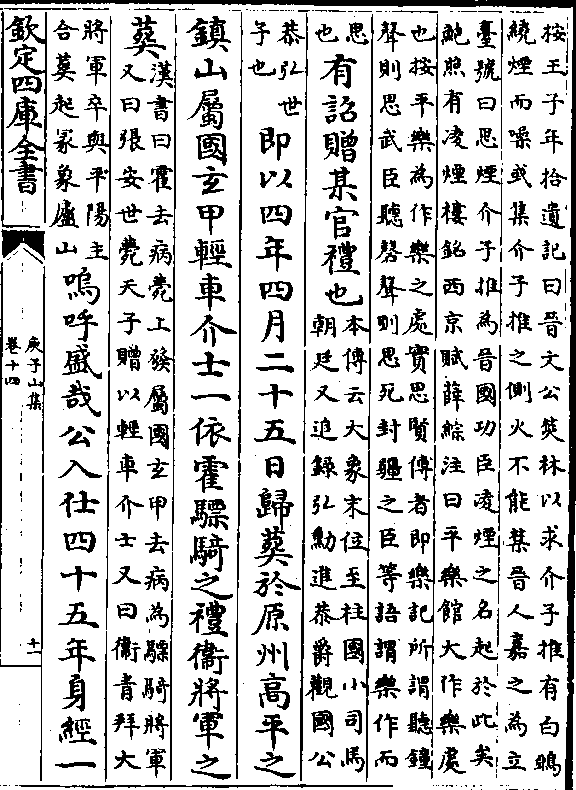 按王子年拾遺記曰晉文公焚林以求介子推有白鵶
繞煙而噪或集介子推之側火不能焚晉人嘉之為立
臺號曰思煙介子推為晉國功臣凌煙之名起於此矣
鮑照有凌煙樓銘西京賦薛綜注曰平樂館大作樂處
也按平樂為作樂之處實思賢傳者即樂記所謂聽鐘
聲則思武臣聽磬聲則思死封疆之臣等語謂樂作而
思
也
有詔贈某官禮也
本傳云大象末位至柱國小司馬
朝廷又追錄弘勳進恭爵觀國公
恭弘世
子也
即以四年四月二十五日歸葬於原州高平之
鎮山屬國玄甲輕車介士一依霍驃騎之禮衞將軍之
葬
漢書曰霍去病薨上發屬國玄甲去病為驃騎將軍
又曰張安世薨天子贈以輕車介士又曰衞青拜大
將軍卒與平陽主
合葬起冢象廬山
嗚呼盛哉公入仕四十五年身經一
欽定四庫全書
庾子山集
卷十四
十一